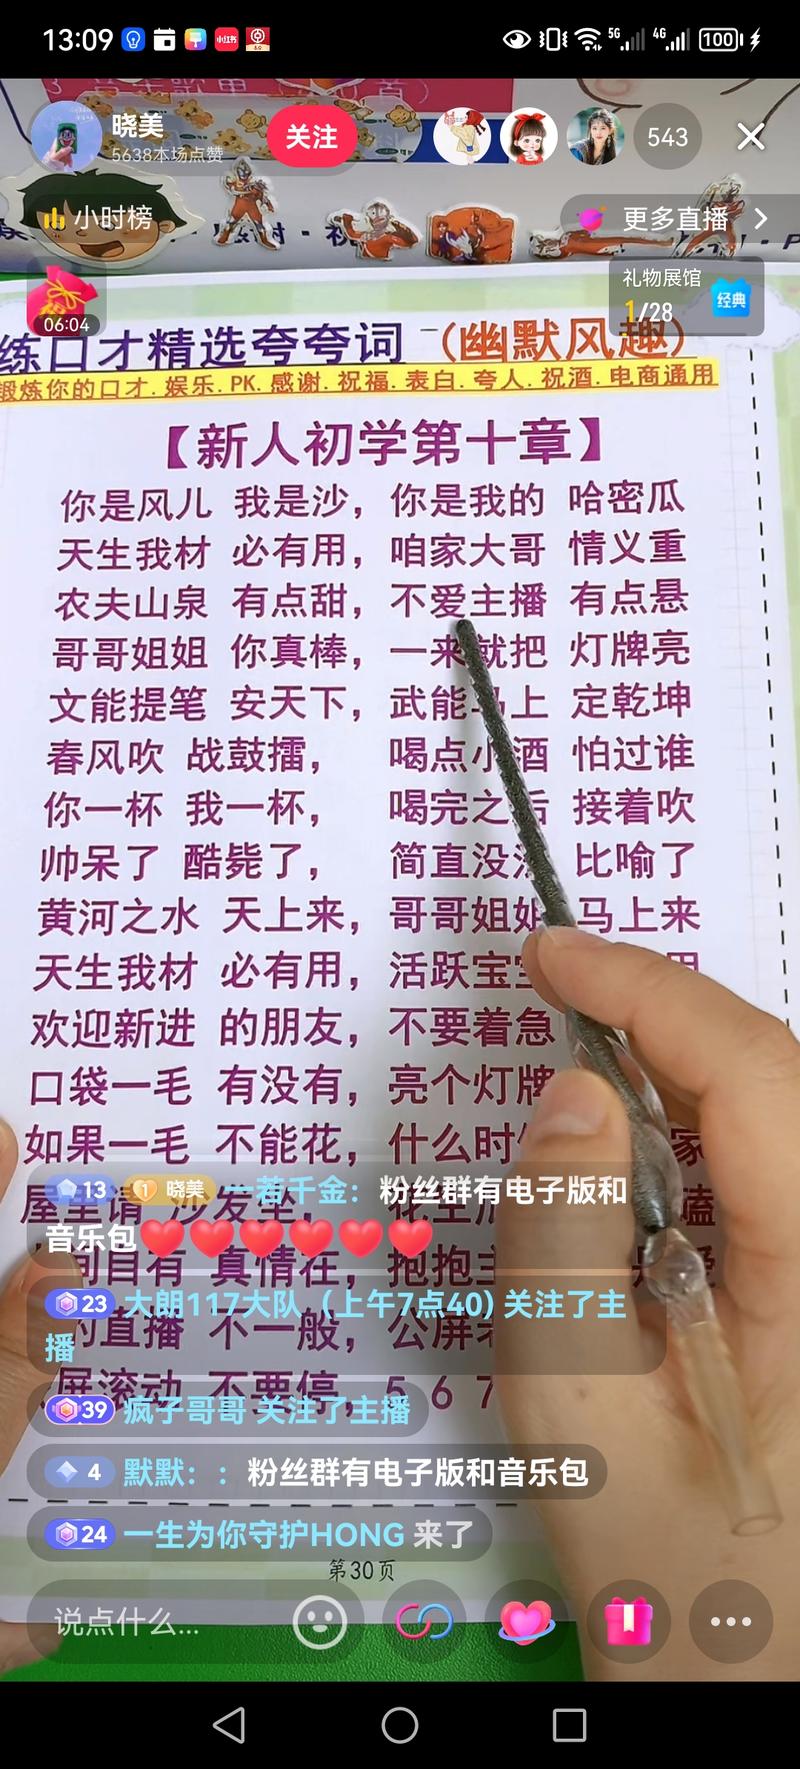 13:09
5G
4G
100
晓美
5638本场点赞
关注
543
小时榜
更多直播
06:04
礼物展馆
1/28
经典
练口才精选夸夸词 (幽默风趣)
锻炼你的口才.娱乐.PK.感谢.祝福.表白.夸人.祝酒.电商通用
【新人初学第十章】
你是风儿 我是沙，你是我的 哈密瓜
天生我材 必有用，咱家大哥 情义重
农夫山泉 有点甜，不爱主播 有点悬
哥哥姐姐 你真棒，一来就把 灯牌亮
文能提笔 安天下，武能马上 定乾坤
春风吹 战鼓擂， 喝点小酒 怕过谁
你一杯 我一杯， 喝完之后 接着吹
帅呆了 酷毙了， 简直没法 比喻了
黄河之水 天上来，哥哥姐姐 马上来
天生我材 必有用，活跃宝宝
欢迎新进 的朋友，不要着急
口袋一毛 有没有，亮个灯牌
如果一毛 不能花，什么时 家
屋里请 沙发坐， 嗑
13 1 晓美 一若千金：粉丝群有电子版和
音乐包
间自有 真情在，抱抱主
23 大朗117大队（上午7点40）关注了主
播
的直播 不一般，公屏
屏滚动 不要停，5 6 7
39 疯子哥哥 关注了主播
4 默默：：粉丝群有电子版和音乐包
24 一生为你守护HONG 来了
第30页
说点什么...